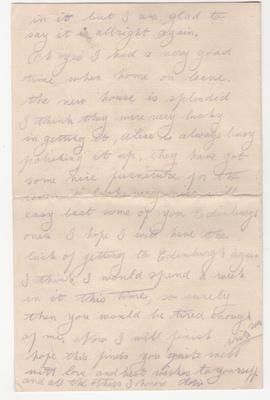 in it but I am glad to
say it is allright again.
Oh yes I had a very good
time when home on leave.
the new house is splendid
I think they were very lucky
in getting it Alice is always busy
polishing it up, they have got
some nice furniture for the
easy beat some of your Edinburgh
ones I hope I will have the
luck of getting to Edinburgh again
I think I would spend a week
in it this time, so surely
then you would be tired enough
of me. Now I will finish
hope this finds you quite well
with love and best wishes to yourself
and all the others I know